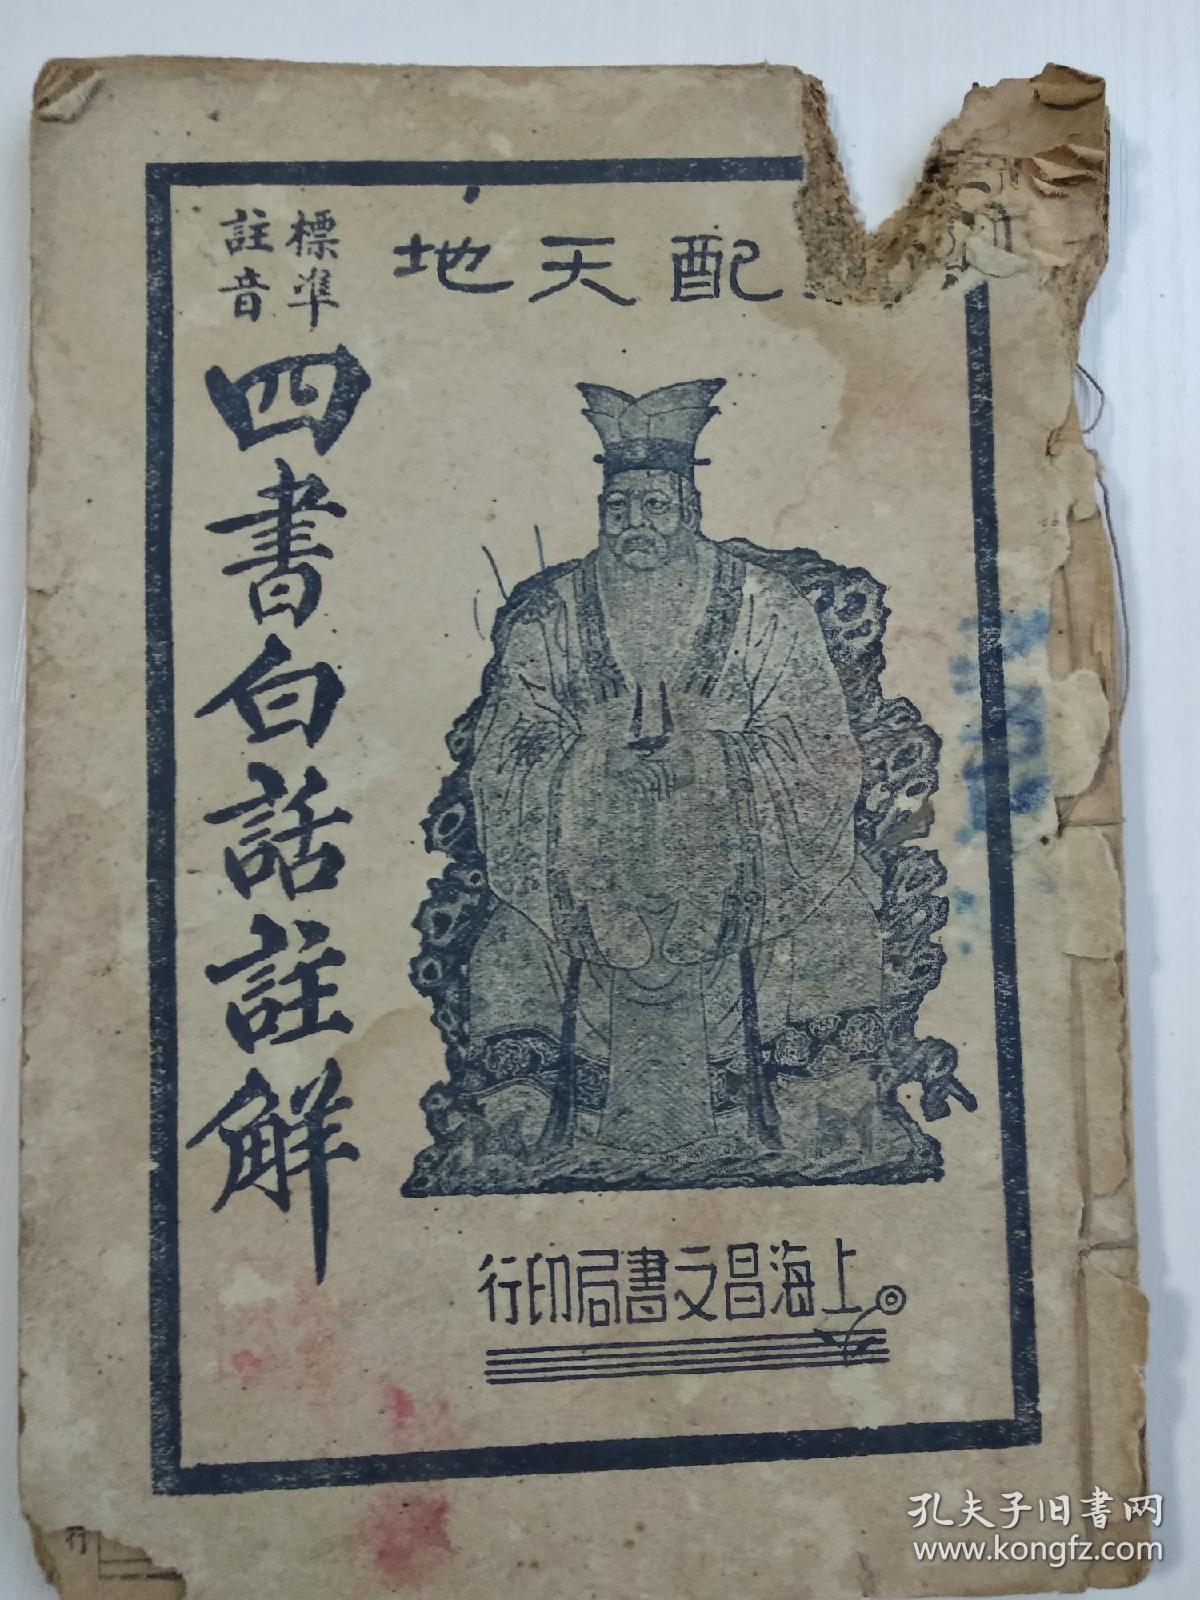 配天地
標準
註音
四書白話註解
上海昌文書局印行
行
孔夫子旧书网
www.kongfz.com